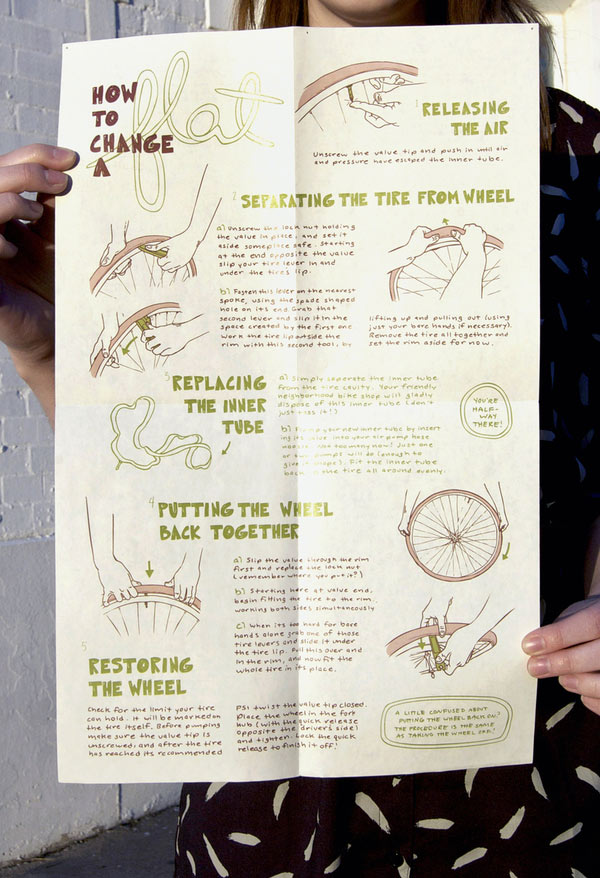 HOW
TO
CHANGE
A
flat
1 RELEASING
THE AIR
Unscrew the valve tip and push in until air
and pressure have escaped the inner tube.
2 SEPARATING THE TIRE FROM WHEEL
a) Unscrew the lock nut holding
the valve in place, and set it
aside someplace safe. Starting
at the end opposite the valve
slip your tire lever in and
under the tire's lip.
b) Fasten this lever on the nearest
spoke, using the spade shaped
hole on its end. Grab that
second lever and slip it in the
space created by the first one
Work the tire lip outside the
rim with this second tool, by
lifting up and pulling out (using
just your bare hands if necessary).
Remove the tire all together and
set the rim aside for now.
3 REPLACING
THE INNER
TUBE
a) Simply seperate the inner tube
from the tire cavity. Your friendly
neighborhood bike shop will gladly
dispose of this inner tube (don't
just toss it!)
b) Pump your new inner tube by insert
ing its valve into your air pump hose.
Not too many now! Just one
or two pumps will do (enough to
give it shape). Fit the inner tube
back in the tire all around evenly.
YOU'RE
HALF-
WAY
THERE!
4 PUTTING THE WHEEL
BACK TOGETHER
a) Slip the valve through the rim
first and replace the lock nut
(remember where you put it?)
b) Starting here at valve end,
begin fitting the tire to the rim,
working both sides simultaneously
c) When its too hard for bare
hands alone grab one of those
tire levers and slide it under
the tire lip. Pull this over and
in the rim, and now fit the
whole tire in its place.
5
RESTORING
THE WHEEL
Check for the limit your tire
can hold. It will be marked on
the tire itself. Before pumping
make sure the valve tip is
unscrewed, and after the tire
has reached its recommended
PSI twist the valve tip closed.
Place the wheel in the fork
hub (with the quick release
opposite the drivers side)
and tighten. Lock the quick
release to finish it off!
A LITTLE CONFUSED ABOUT
PUTTING THE WHEEL BACK ON?
THE PROCEDURE IS THE SAME
AS TAKING THE WHEEL OFF.